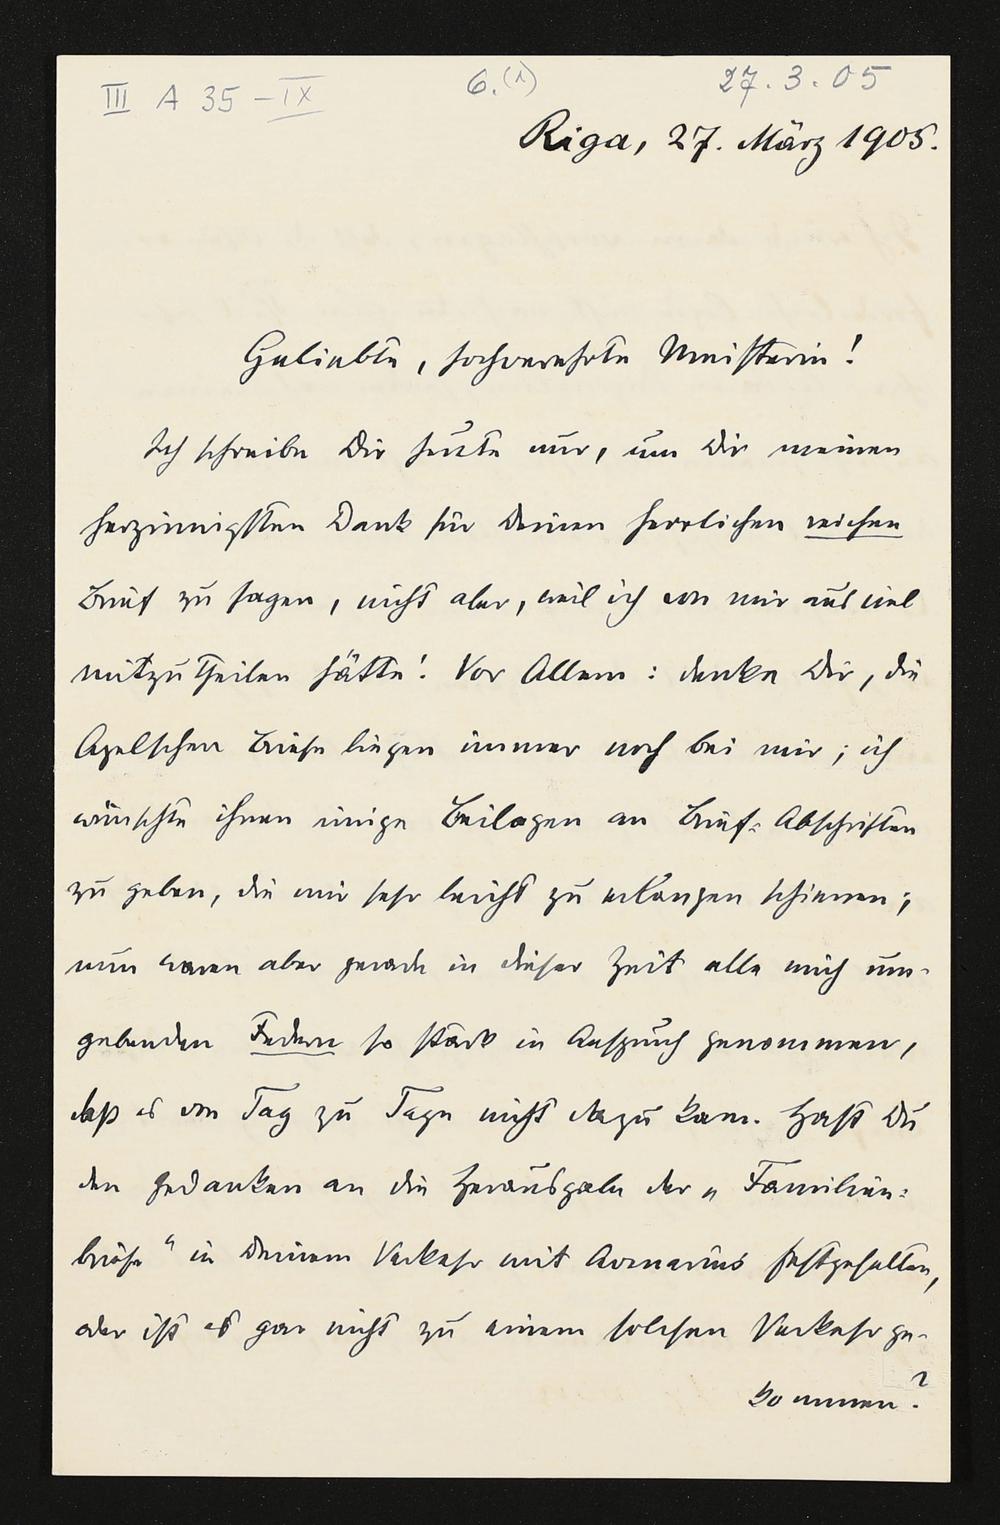 III A 35 – IX 6.(1) 27.3.05
Riga, 27. März 1905.
Geliebte, hochverehrte Meisterin!
Ich schreibe Dir heute nur, um Dir meinen
herzinnigsten Dank für Deinen herrlichen reichen
Brief zu sagen, nicht aber, weil ich von mir aus viel
mitzutheilen hätte! Vor Allem: denke Dir, die
Apelschen Briefe liegen immer noch bei mir; ich
wünschte ihnen einige Beilagen an Brief-Abschriften
zu geben, die mir sehr leicht zu erlangen schienen;
nun waren aber gerade in dieser Zeit alle mich um-
gebenden Federn so stark in Anspruch genommen,
daß es von Tag zu Tage nicht dazu kam. Hast Du
den Gedanken an die Herausgabe der „Familien-
briefe“ in Deinem Verkehr mit Avenarius festgehalten,
oder ist es gar nicht zu einem solchen Verkehr ge-
kommen?